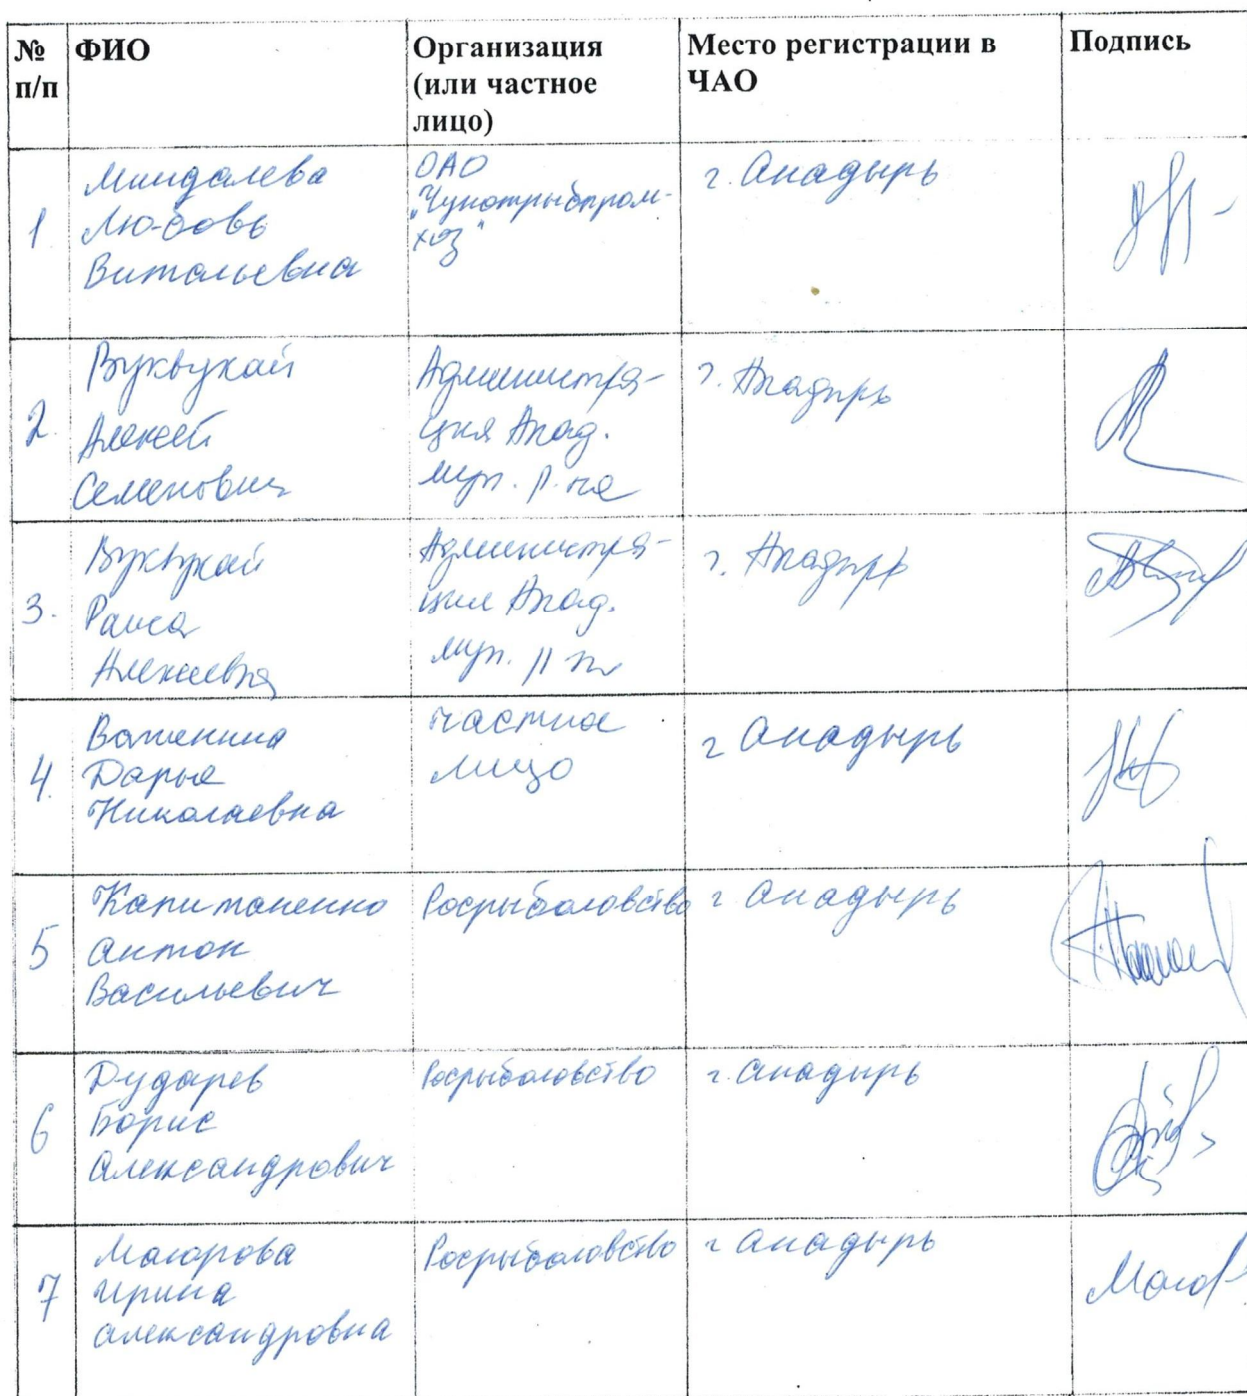 № п/п
ФИО
Организация (или частное лицо)
Место регистрации в ЧАО
Подпись
1
Миндалева
Любовь
Витальевна
ОАО
"Чукотрыбпром-
хоз"
г. Анадырь
2.
Вуквукай
Алексей
Семенович
Администра-
ция Анад.
мун. р-на
г. Анадырь
3.
Вуквукай
Раиса
Алексеевна
Администра-
ция Анад.
мун. р-на
г. Анадырь
4.
Важенина
Дарья
Николаевна
частное
лицо
г Анадырь
5
Капитаненко
Антон
Васильевич
Росрыболовство
г Анадырь
6
Дударев
Борис
Александрович
Росрыболовство
г. Анадырь
7
Маюрова
Ирина
Александровна
Росрыболовство
г Анадырь